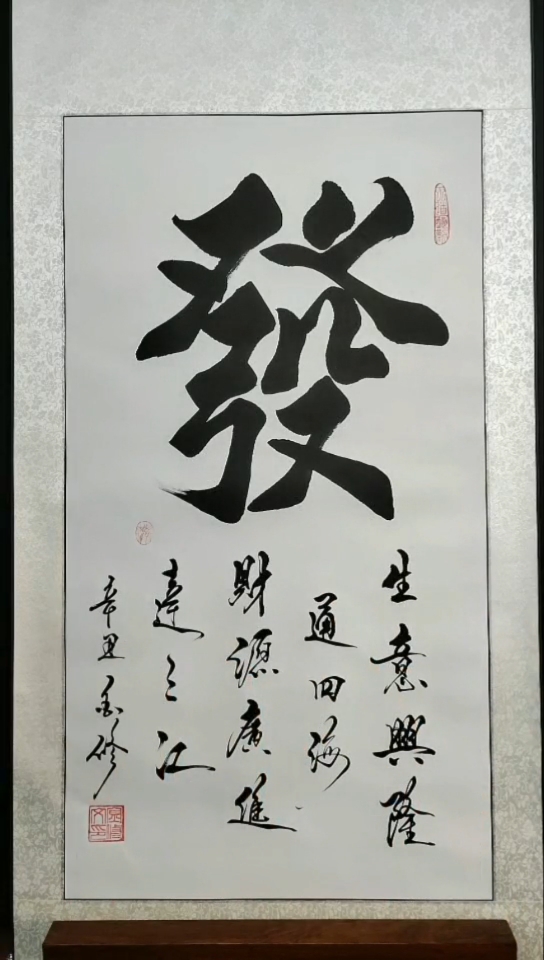 發
生意興隆
通四海
財源廣進
達三江
辛丑